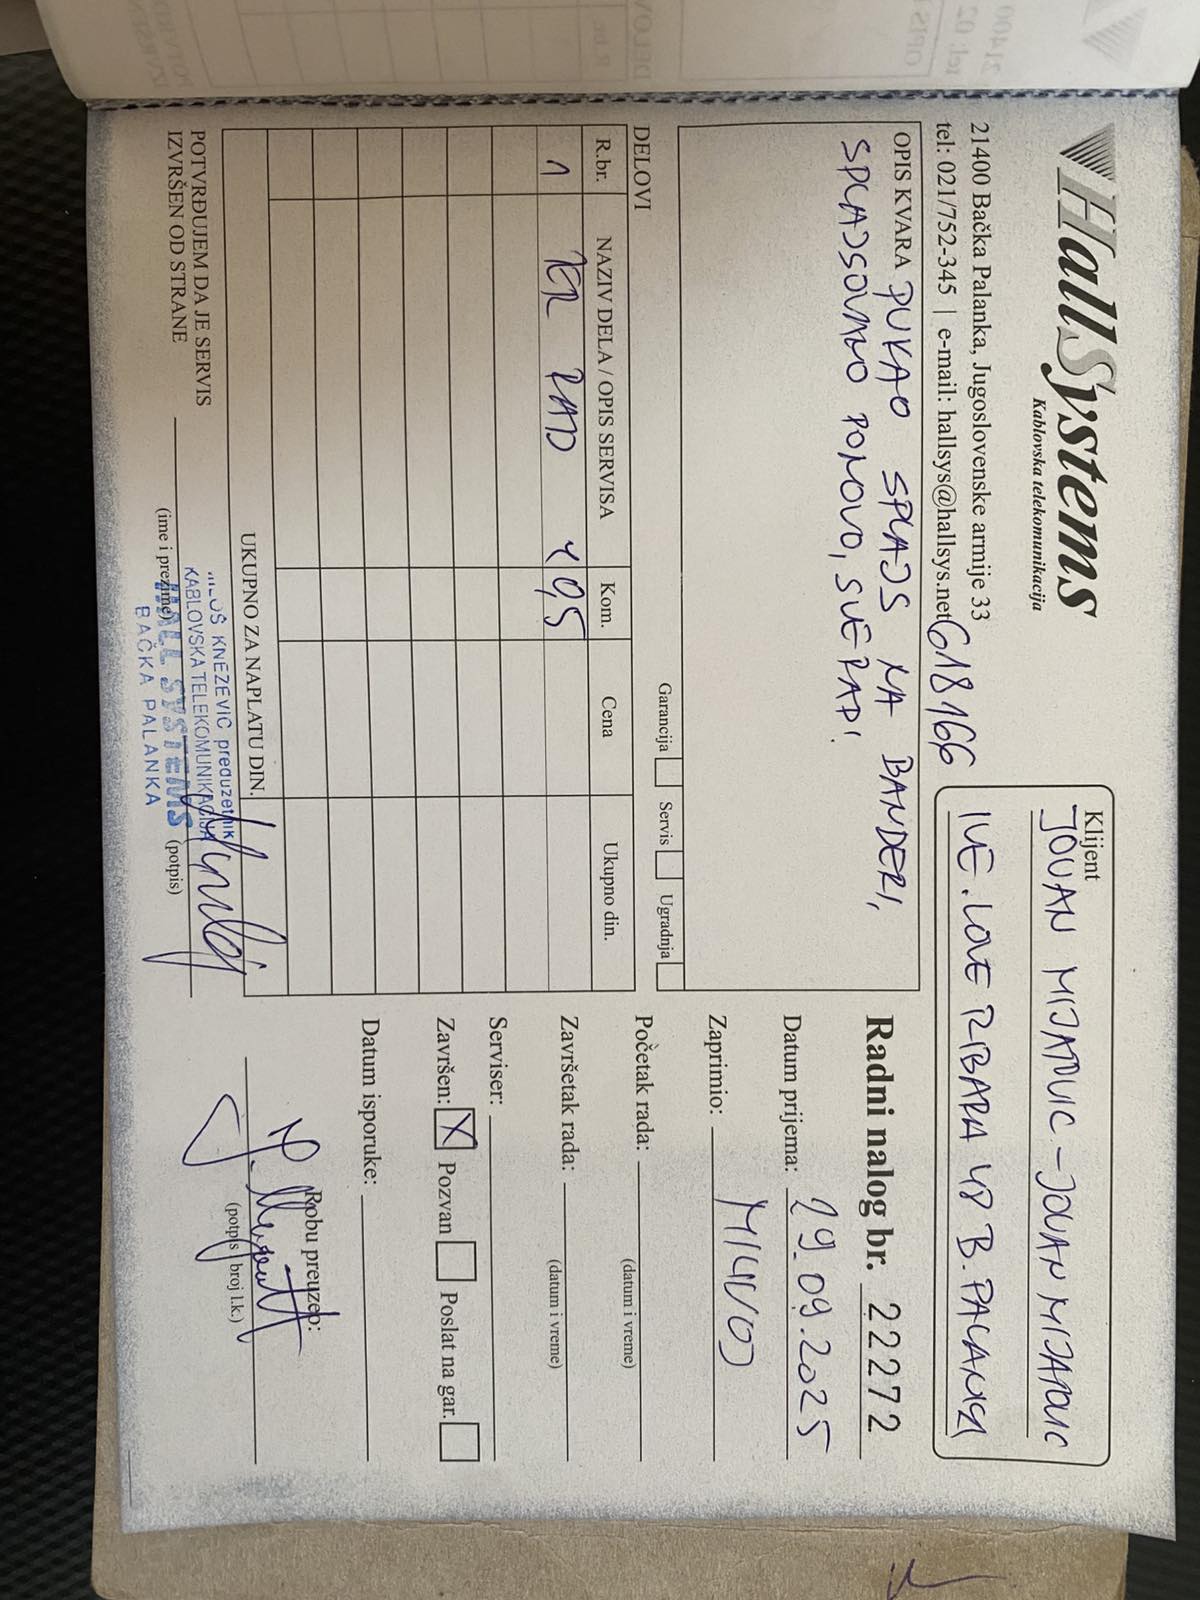 HallSystems
Kablovska telekomunikacija
21400 Bačka Palanka, Jugoslovenske armije 33
tel: 021/752-345 | e-mail: hallsys@hallsys.net
618166
Klijent
JOVAN MIJATOVIC - JOVAN MIJATOVIC
IVE. LOVE RIBARA 48 B. PALANKA
OPIS KVARA PUKAO SPLAJS NA BANDERI,
SPLAJSOVANO PONOVO, SVE RADI.
Radni nalog br. 22272
Datum prijema: 29.09.2025
Zaprimio: MILIVOJ
Početak rada:
(datum i vreme)
Završetak rada:
(datum i vreme)
Serviser:
Završen: X Pozvan Poslat na gar.
Datum isporuke:
Robu preuzeo:
(potpis i broj l.k.)
Garancija Servis Ugradnja
DELOVI
R.br. NAZIV DELA / OPIS SERVISA Kom. Cena Ukupno din.
1 TER RAD 0,5
UKUPNO ZA NAPLATU DIN.
POTVRĐUJEM DA JE SERVIS
IZVRŠEN OD STRANE
(ime i prezime) (potpis)
KNEZEVIC preduzetnik
KABLOVSKA TELEKOMUNIKACIJA
HALL SYSTEMS
BAČKA PALANKA